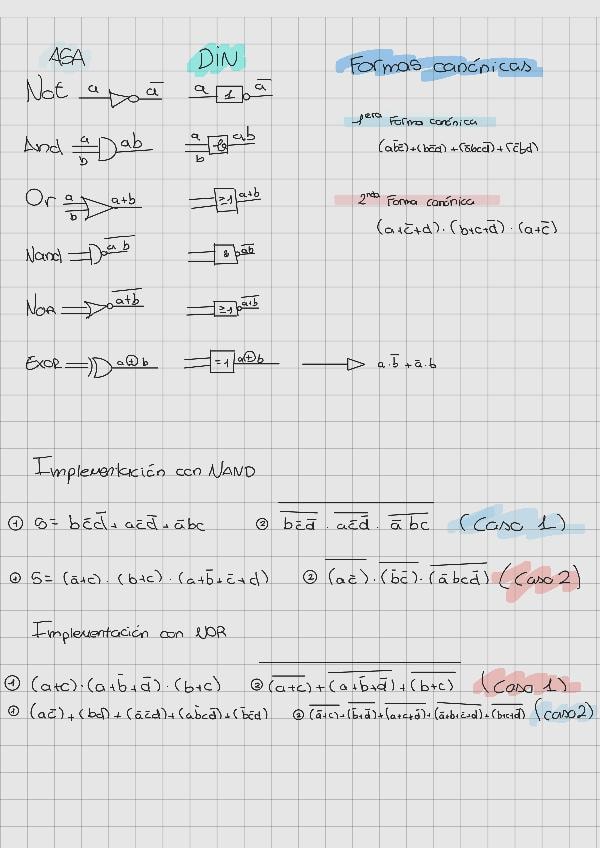 ASA DiN Formas canónicas
Not a a̅ a 1 a̅
1era Forma canónica
And a b ab a b & ab
(ab̅c̅)+(b̅c̅d)+(a̅bcd̅)+(c̅bd)
Or a b a+b ≥1 a+b
2nda Forma canónica
(a+c̅+d)·(b+c+d̅)·(a+c̅)
Nand a̅b̅ & a̅b̅
NOR a̅+̅b̅ ≥1 a̅+̅b̅
EXOR a⊕b =1 a⊕b a·b̅+a̅·b
Implementación con NAND
① S= bc̅d̅+ac̅d̅+a̅bc ② bc̅d̅ · ac̅d̅ · a̅bc (Caso 1)
① S= (a̅+c)·(b+c)·(a+b̅+c̅+d) ② (ac̅)·(b̅c̅)·(a̅bcd̅) (Caso 2)
Implementación con NOR
① (a+c)·(a+b̅+d̅)·(b+c) ② (a+c)+(a+b̅+d̅)+(b+c) (Caso 1)
① (ac̅)+(bd)+(a̅c̅d)+(ab̅cd̅)+(b̅c̅d) ② (a̅+c)+(b̅+d̅)+(a+c+d̅)+(a̅+b+c̅+d)+(b+c+d̅) (caso 2)